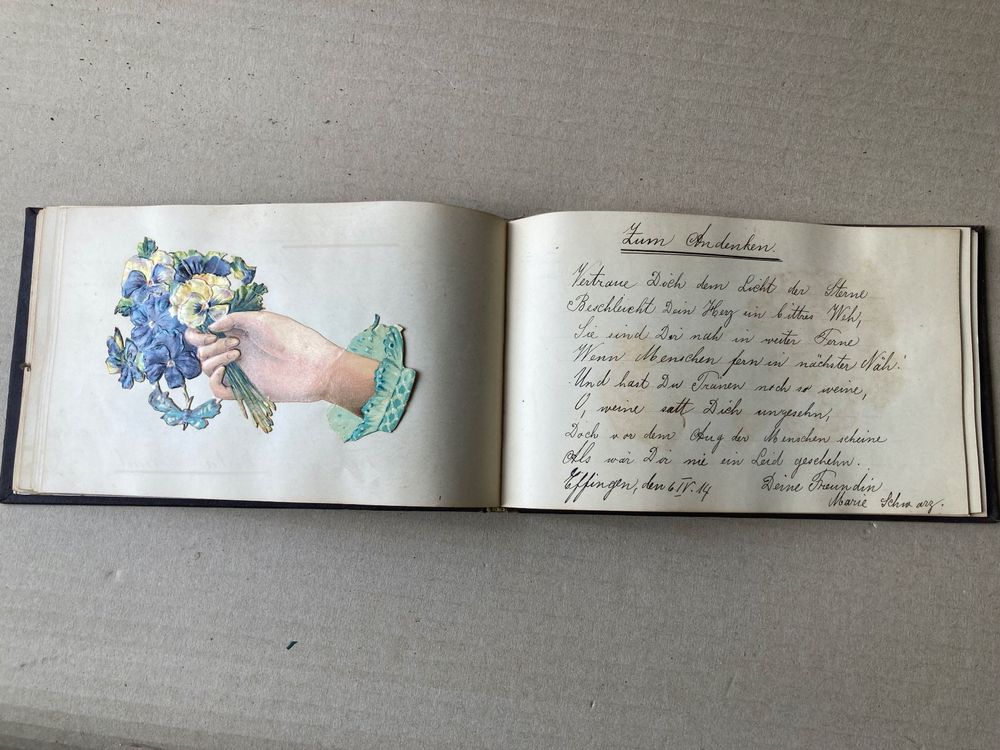 Zum Andenken.
Vertraue Doch dem Licht der Sterne
Beschleicht Dein Herz ein bittres Weh,
Sie sind Dir nah in weiter Ferne
Wenn Menschen fern in nächster Näh!
Und hast Du Tränen noch so weine,
O, weine satt Dich ungesehn,
Doch vor dem Aug der Menschen scheine
Als wär Dir nie ein Leid geschehn.
Effingen, den 6. IV. 14 Deine Freundin
Marie Schwarz.